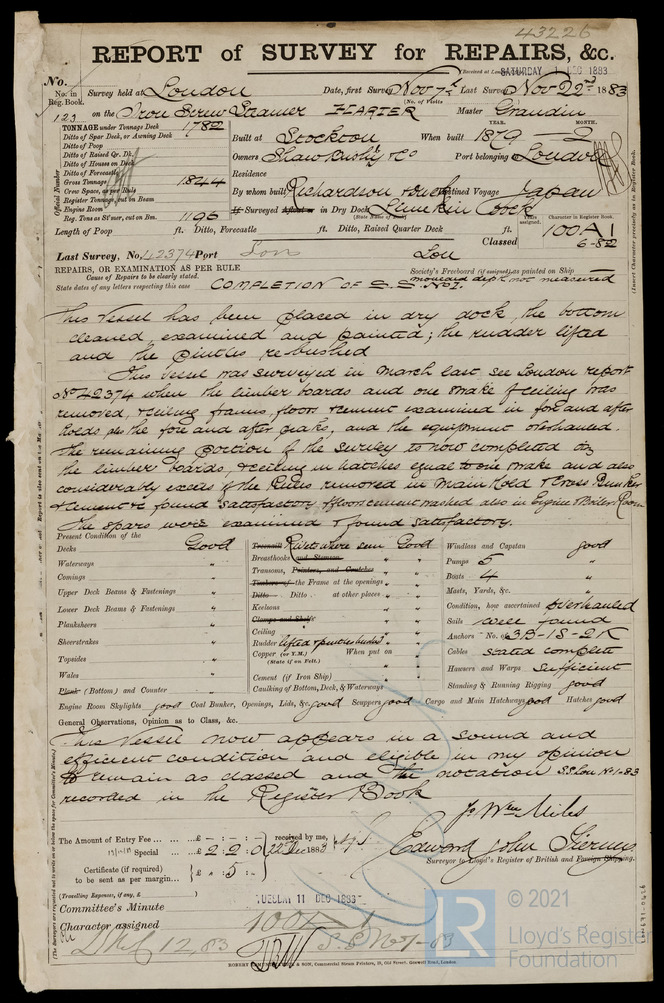 43226
REPORT of SURVEY for REPAIRS, &c.
SATURDAY 1 DEC 1883
No.
No. in Reg. Book. Survey held at London Date, first Survey Nov 7th Last Survey Nov 22nd 1883
(No. of Visits
123 on the Iron Screw Steamer HARTER Master Grandin
TONNAGE under Tonnage Deck 1782
YEAR. MONTH.
Ditto of Spar Deck, or Awning Deck
Built at Stockton When built 1879 2
Ditto of Poop
Ditto of Raised Qr. Dk.
Owners Port belonging London
Ditto of Houses on Deck
Ditto of Forecastle
Residence
Gross Tonnage 1844
Crew Space, as per Rule
By whom built Richardson Destined Voyage Japan
Register Tonnage, cut on Beam
Engine Room
If Surveyed Afloat or in Dry Dock
Reg. Tons as St'mer, cut on Bm. 1196
Official Number
Character in Register Book.
100A1
6-82
Length of Poop ft. Ditto, Forecastle ft. Ditto, Raised Quarter Deck ft.
Classed
Last Survey, No. 42374 Port Lon
Lon
REPAIRS, OR EXAMINATION AS PER RULE
Society's Freeboard (if assigned) as painted on Ship
Cause of Repairs to be clearly stated.
moulded depth not measured
State dates of any letters respecting this case
COMPLETION OF S.S. No I.
This Vessel has been placed in dry dock, the bottom
cleaned examined and painted; the rudder lifted
and the pintles re-bushed
This vessel was surveyed in March last see London report
No 42374 when the limber boards and one strake of ceiling was
removed, & ceiling frames, floors & cement examined in fore and after
holds, also the fore and after peaks, and the equipment overhauled.
The remaining portion of the survey is now completed by
the limber boards, & ceiling in hatches equal to one strake and also
considerably excess of the Rules removed in Main Hold & Cross Bunker
& cement &c found satisfactory & floor cement washed also in Engine & Boiler Room
The spars were examined & found satisfactory.
Present Condition of the
Decks Good
Waterways "
Comings "
Upper Deck Beams & Fastenings "
Lower Deck Beams & Fastenings "
Planksheers "
Sheerstrakes "
Topsides "
Wales "
Plank (Bottom) and Counter "
Treenail Rivets where seen Good
Breasthooks and Stemson "
Transoms, Pointers, and Crutches "
Timbers of the Frame at the openings "
Ditto Ditto at other places "
Keelsons "
Clamps and Shelfs
Ceiling "
Rudder lifted & pintles bushed "
Copper (or Y.M.) When put on
(State if on Felt.)
Cement (if Iron Ship) "
Caulking of Bottom, Deck, & Waterways "
Windlass and Capstan good
Pumps 5 "
Boats 4 "
Masts, Yards, &c. "
Condition, how ascertained overhauled
Sails well found
Anchors No. of 3B-1S-2K
Cables stated complete
Hawsers and Warps Sufficient
Standing & Running Rigging good
Engine Room Skylights good Coal Bunker, Openings, Lids, &c. good Scuppers good Cargo and Main Hatchways good Hatches good
General Observations, Opinion as to Class, &c.
This Vessel now appears in a sound and
efficient condition and eligible in my opinion
to remain as classed and the notation S.S. Lon No 1-83
recorded in the Register Book
The Amount of Entry Fee ... £ - : - :
Special ... £ 2 : 2 : 0
received by me,
Certificate (if required) to be sent as per margin... £ . 5 . -
Edward John Tierney
Surveyor to Lloyd's Register of British and Foreign Shipping.
(Travelling Expenses, if any, £
TUESDAY 11 DEC 1883
Committee's Minute
Character assigned 100A1
S.S. No 1-83
12,83
© 2021
LR
Lloyd's Register
Foundation